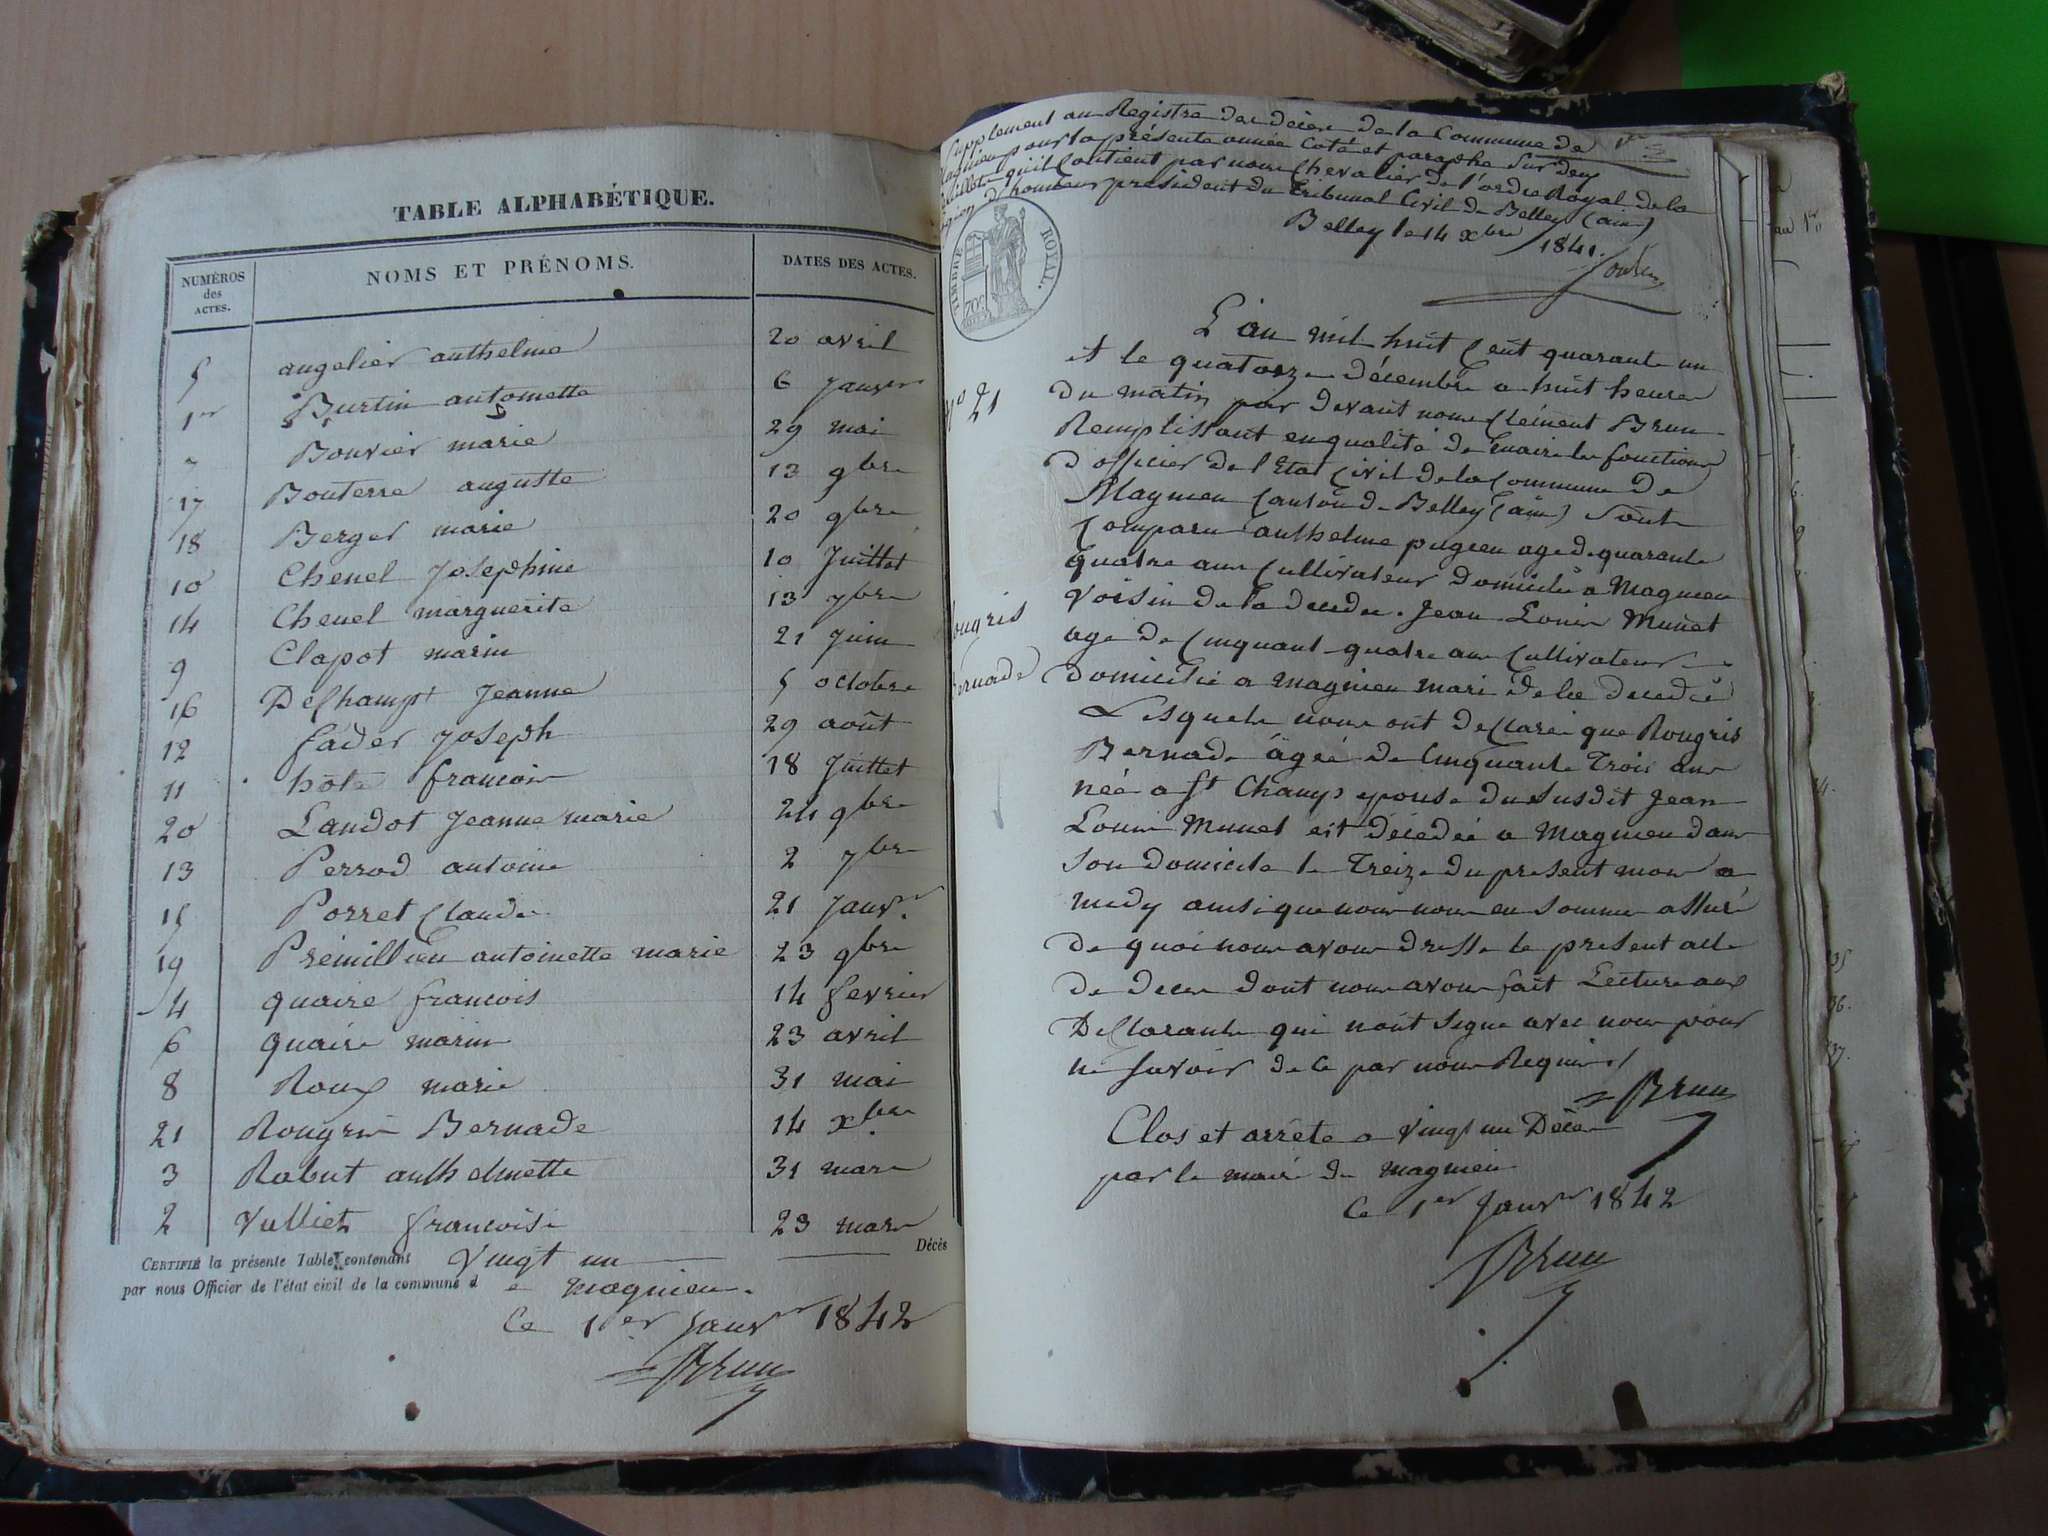 TABLE ALPHABÉTIQUE.
NUMÉROS des ACTES. NOMS ET PRÉNOMS. DATES DES ACTES.
5 angelier anthelme 20 avril
1er Burtin antoinette 6 Janvr
7 Bouvier marie 29 mai
17 Bouterre auguste 13 9bre
18 Berger marie 20 9bre
10 Chenel Josephine 10 Juillet
14 Chenel marguerite 13 7bre
9 Clapot marin 21 Juin
16 Deschamps Jeanne 5 octobre
12 fader Joseph 29 août
11 hôte francois 18 Juillet
20 Landot Jeanne marie 24 9bre
13 Perrod antoine 2 7bre
15 Porret Claude 21 Janvr.
19 Prémillieu antoinette marie 23 9bre
4 quaire francois 14 fevrier
6 quaire marin 23 avril
8 Roux marie 31 mai
21 Rougris Bernade 14 xbre
3 Rabut anthelmette 31 mars
2 Vulliet francoise 23 mars
CERTIFIÉ la présente Table contenant Vingt un Décès
par nous Officier de l'état civil de la commune de magnieu.
Ce 1er Janvr 1842
Brun
Supplement au Registre des décès de la Commune de
Magnieu pour la présente année Coté et paraphé Sur deux
feuillets qu'il Contient par nous Chevalier de l'ordre Royal de la
Legion d'honneur président du Tribunal Civil de Belley (ain)
Belley le 14 xbre 1841.
TIMBRE ROYAL.
70C
L'an mil huit Cent quarante un
et le quatorze décembre a huit heures
No 21
du matin par devant nous Clément Brun
Remplissant en qualité de maire les fonctions
d'officier de l'Etat Civil de la Commune de
Magnieu Canton de Belley (ain) Sont
Comparu anthelme pugieu age de quarante
quatre ans Cultivateur domicilié a Magnieu
Voisin de la décédée. Jean Louis Munet
ougris
age de Cinquant quatre ans Cultivateur
ernade
domicilié a magnieu mari de la decedée
Lesquels nous ont declaré que Rougris
Bernade âgée de Cinquante Trois ans
née a St Champ epouse du susdit Jean
Louis Munet est décédée a Magnieu dans
son domicile le Treize du present mois a
midy ainsi que nous nous en sommes assuré
de quoi nous avons dresse le present acte
de deces dont nous avons fait Lecture aux
Declarants qui n'ont signe avec nous pour
ne savoir de ce par nous Requis
Brun
Clos et arrêté a Vingt un Décès
par le maire de magnieu
Ce 1er Janvr 1842
Brun